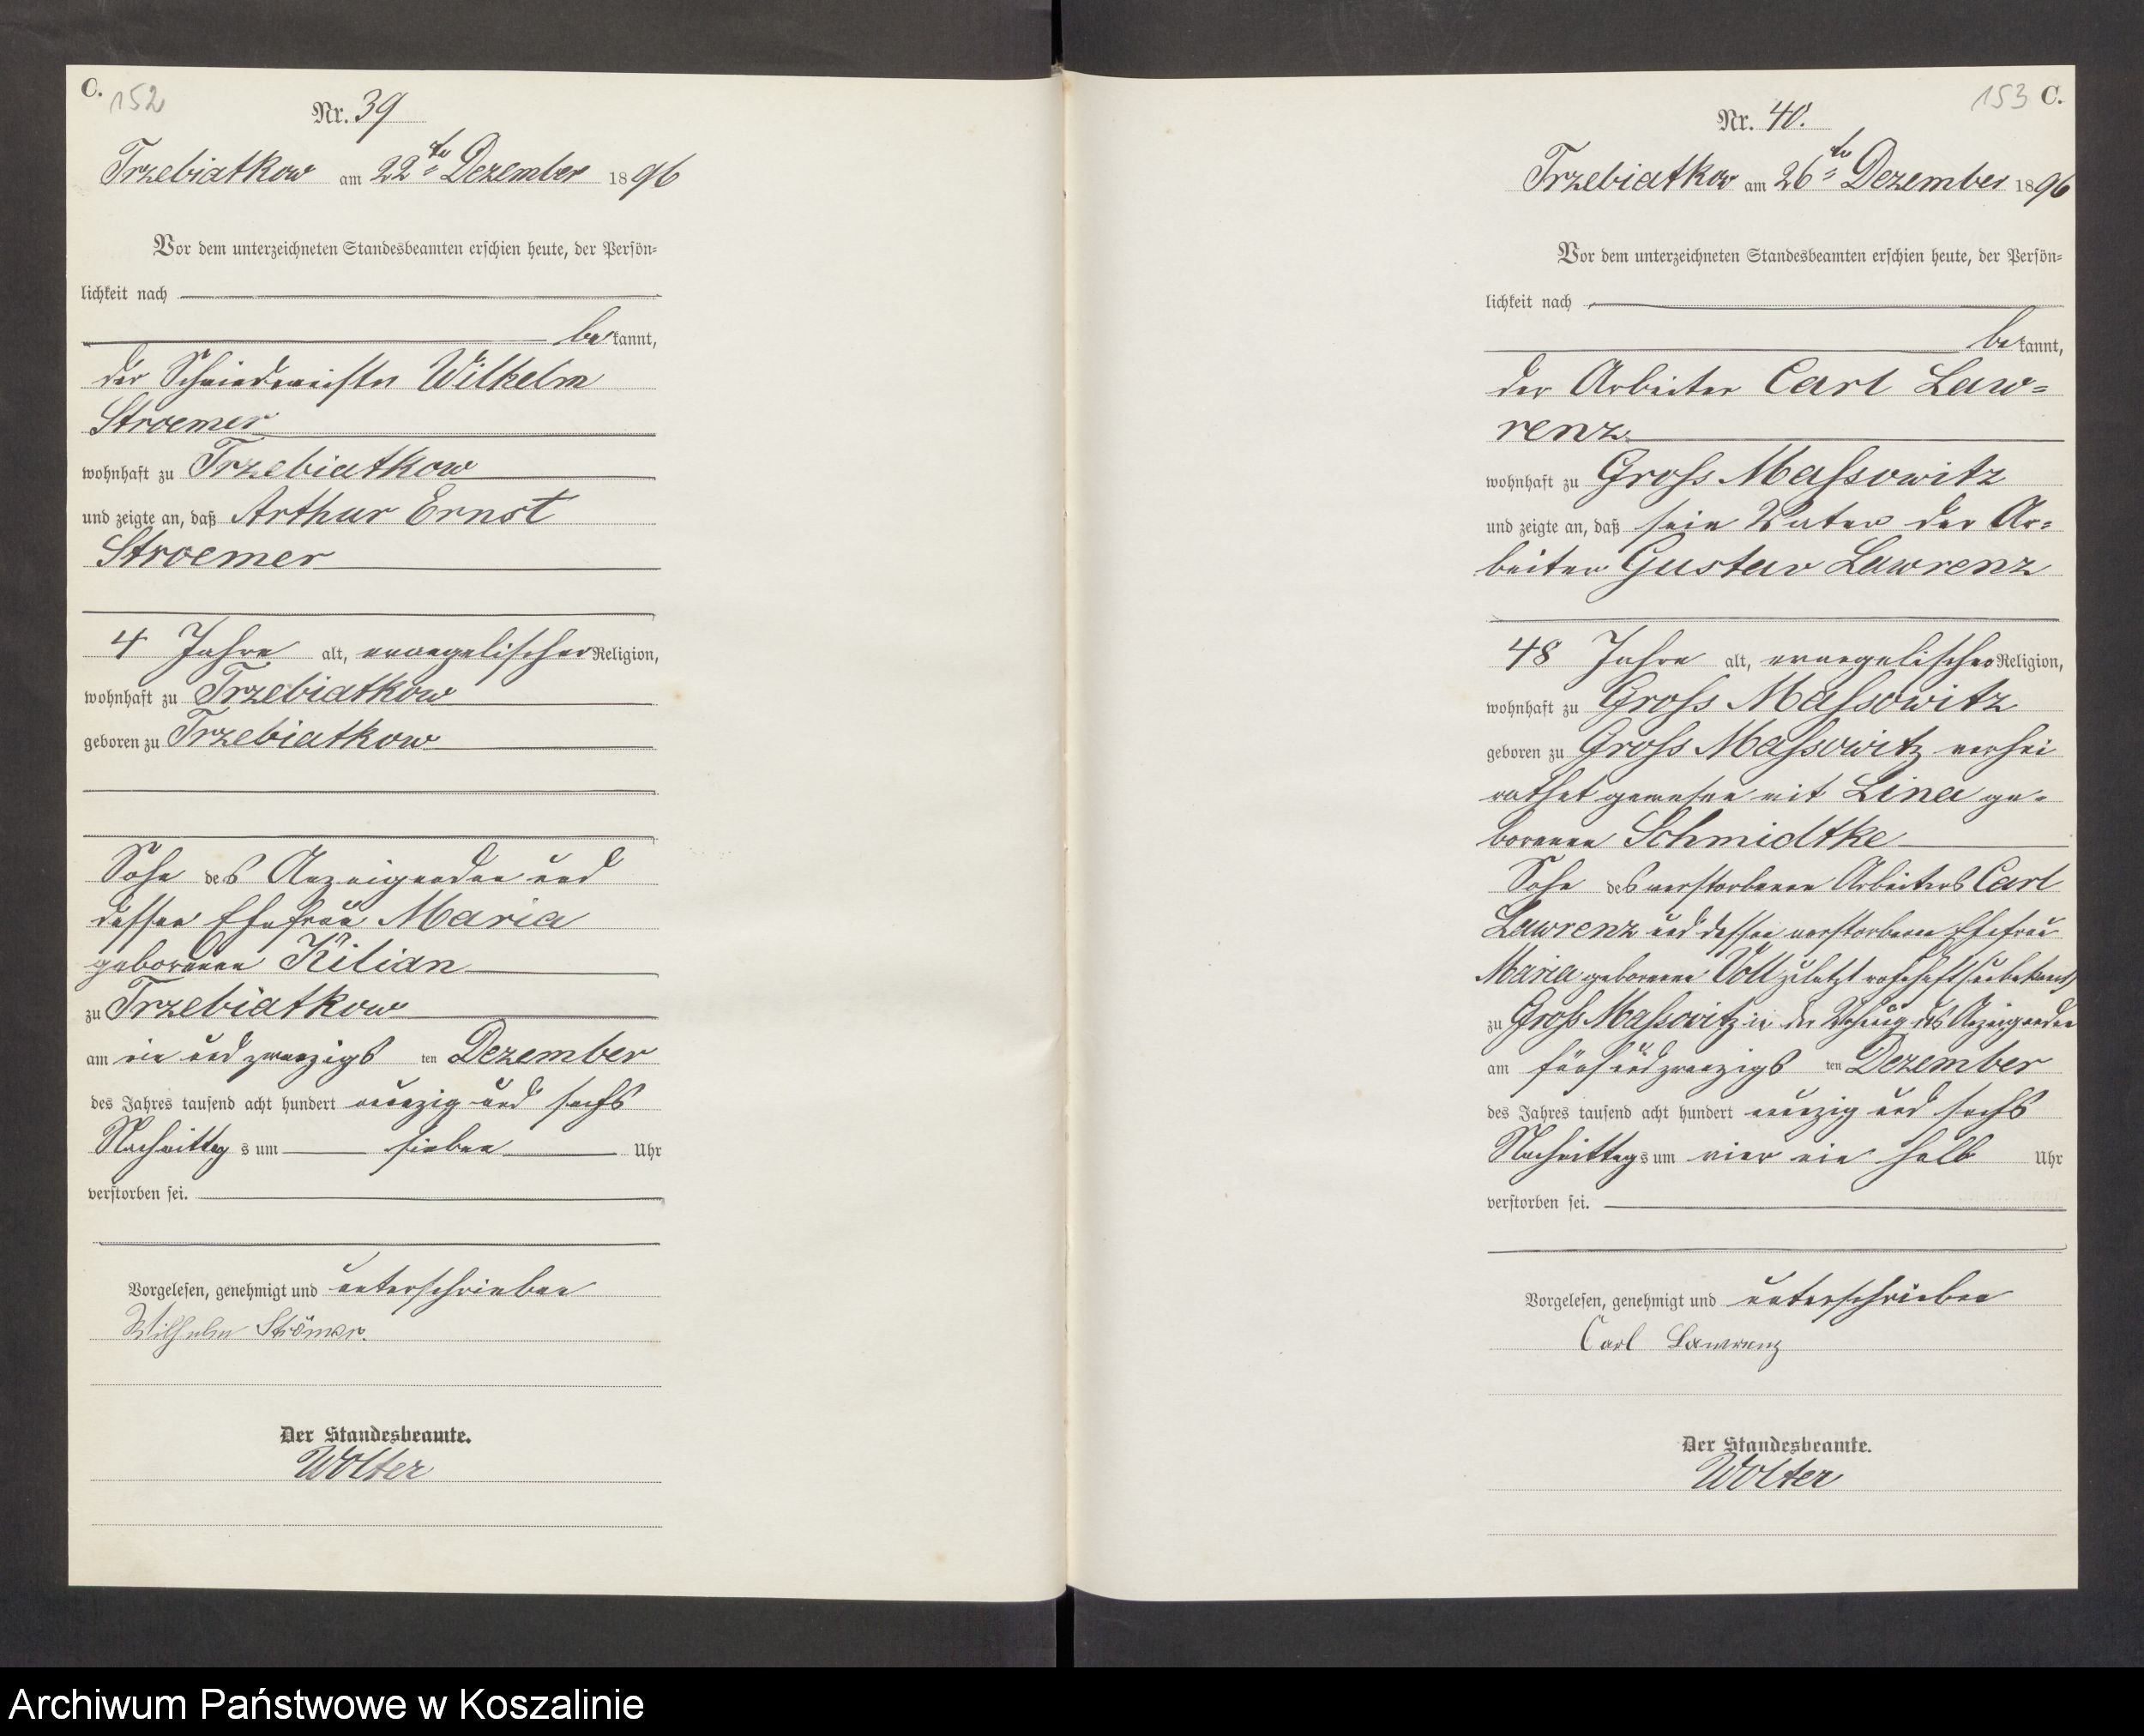 C. 152
Nr. 39
Trzebiatkow am 22ten Dezember 1896
Vor dem unterzeichneten Standesbeamten erschien heute, der Persön-
lichkeit nach
bekannt,
der Schmiedemeister Wilhelm
Stroemer
wohnhaft zu Trzebiatkow
und zeigte an, daß Arthur Ernst
Stroemer
4 Jahre alt, evangelischer Religion,
wohnhaft zu Trzebiatkow
geboren zu Trzebiatkow
Sohn des Anzeigenden und
dessen Ehefrau Maria
geborenen Kilian
zu Trzebiatkow
am ein und zwanzigsten Dezember
des Jahres tausend acht hundert neunzig und sechs
Nachmittags um sieben Uhr
verstorben sei.
Vorgelesen, genehmigt und unterschrieben
Wilhelm Strömer.
Der Standesbeamte.
Wolter
153 C.
Nr. 40.
Trzebiatkow am 26ten Dezember 1896
Vor dem unterzeichneten Standesbeamten erschien heute, der Persön-
lichkeit nach
bekannt,
der Arbeiter Carl Law=
renz
wohnhaft zu Gross Massowitz
und zeigte an, daß sein Vater der Ar=
beiter Gustav Lawrenz
48 Jahre alt, evangelischer Religion,
wohnhaft zu Gross Massowitz
geboren zu Gross Massowitz verhei
rathet gewesen mit Lina ge-
borenen Schmidtke
Sohn des verstorbenen Arbeiters Carl
Lawrenz und dessen verstorbenen Ehefrau
Maria geborenen Voll zuletzt wohnhaft (unbekannt)
zu Gross Massowitz in der Wohnung des Anzeigenden
am fünf und zwanzigsten Dezember
des Jahres tausend acht hundert neunzig und sechs
Nachmittags um vier ein halb Uhr
verstorben sei.
Vorgelesen, genehmigt und unterschrieben
Carl Lawrenz
Der Standesbeamte.
Wolter
Archiwum Państwowe w Koszalinie